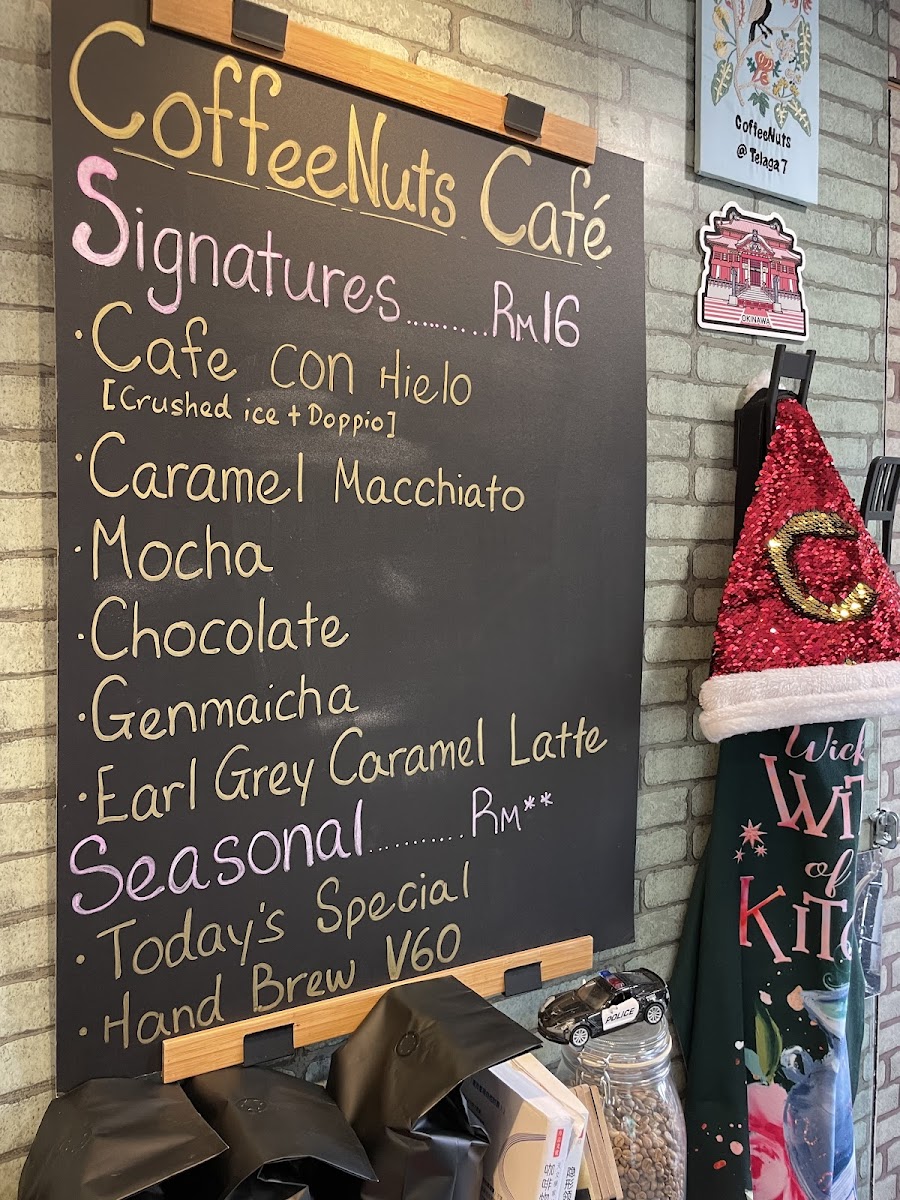 CoffeeNuts Café
Signatures..........RM16
· Cafe con Hielo
[Crushed ice + Doppio]
· Caramel Macchiato
· Mocha
· Chocolate
· Genmaicha
· Earl Grey Caramel Latte
Seasonal...........RM**
· Today's Special
· Hand Brew V60
CoffeeNuts
@ Telaga 7
OKINAWA
C
of
POLICE